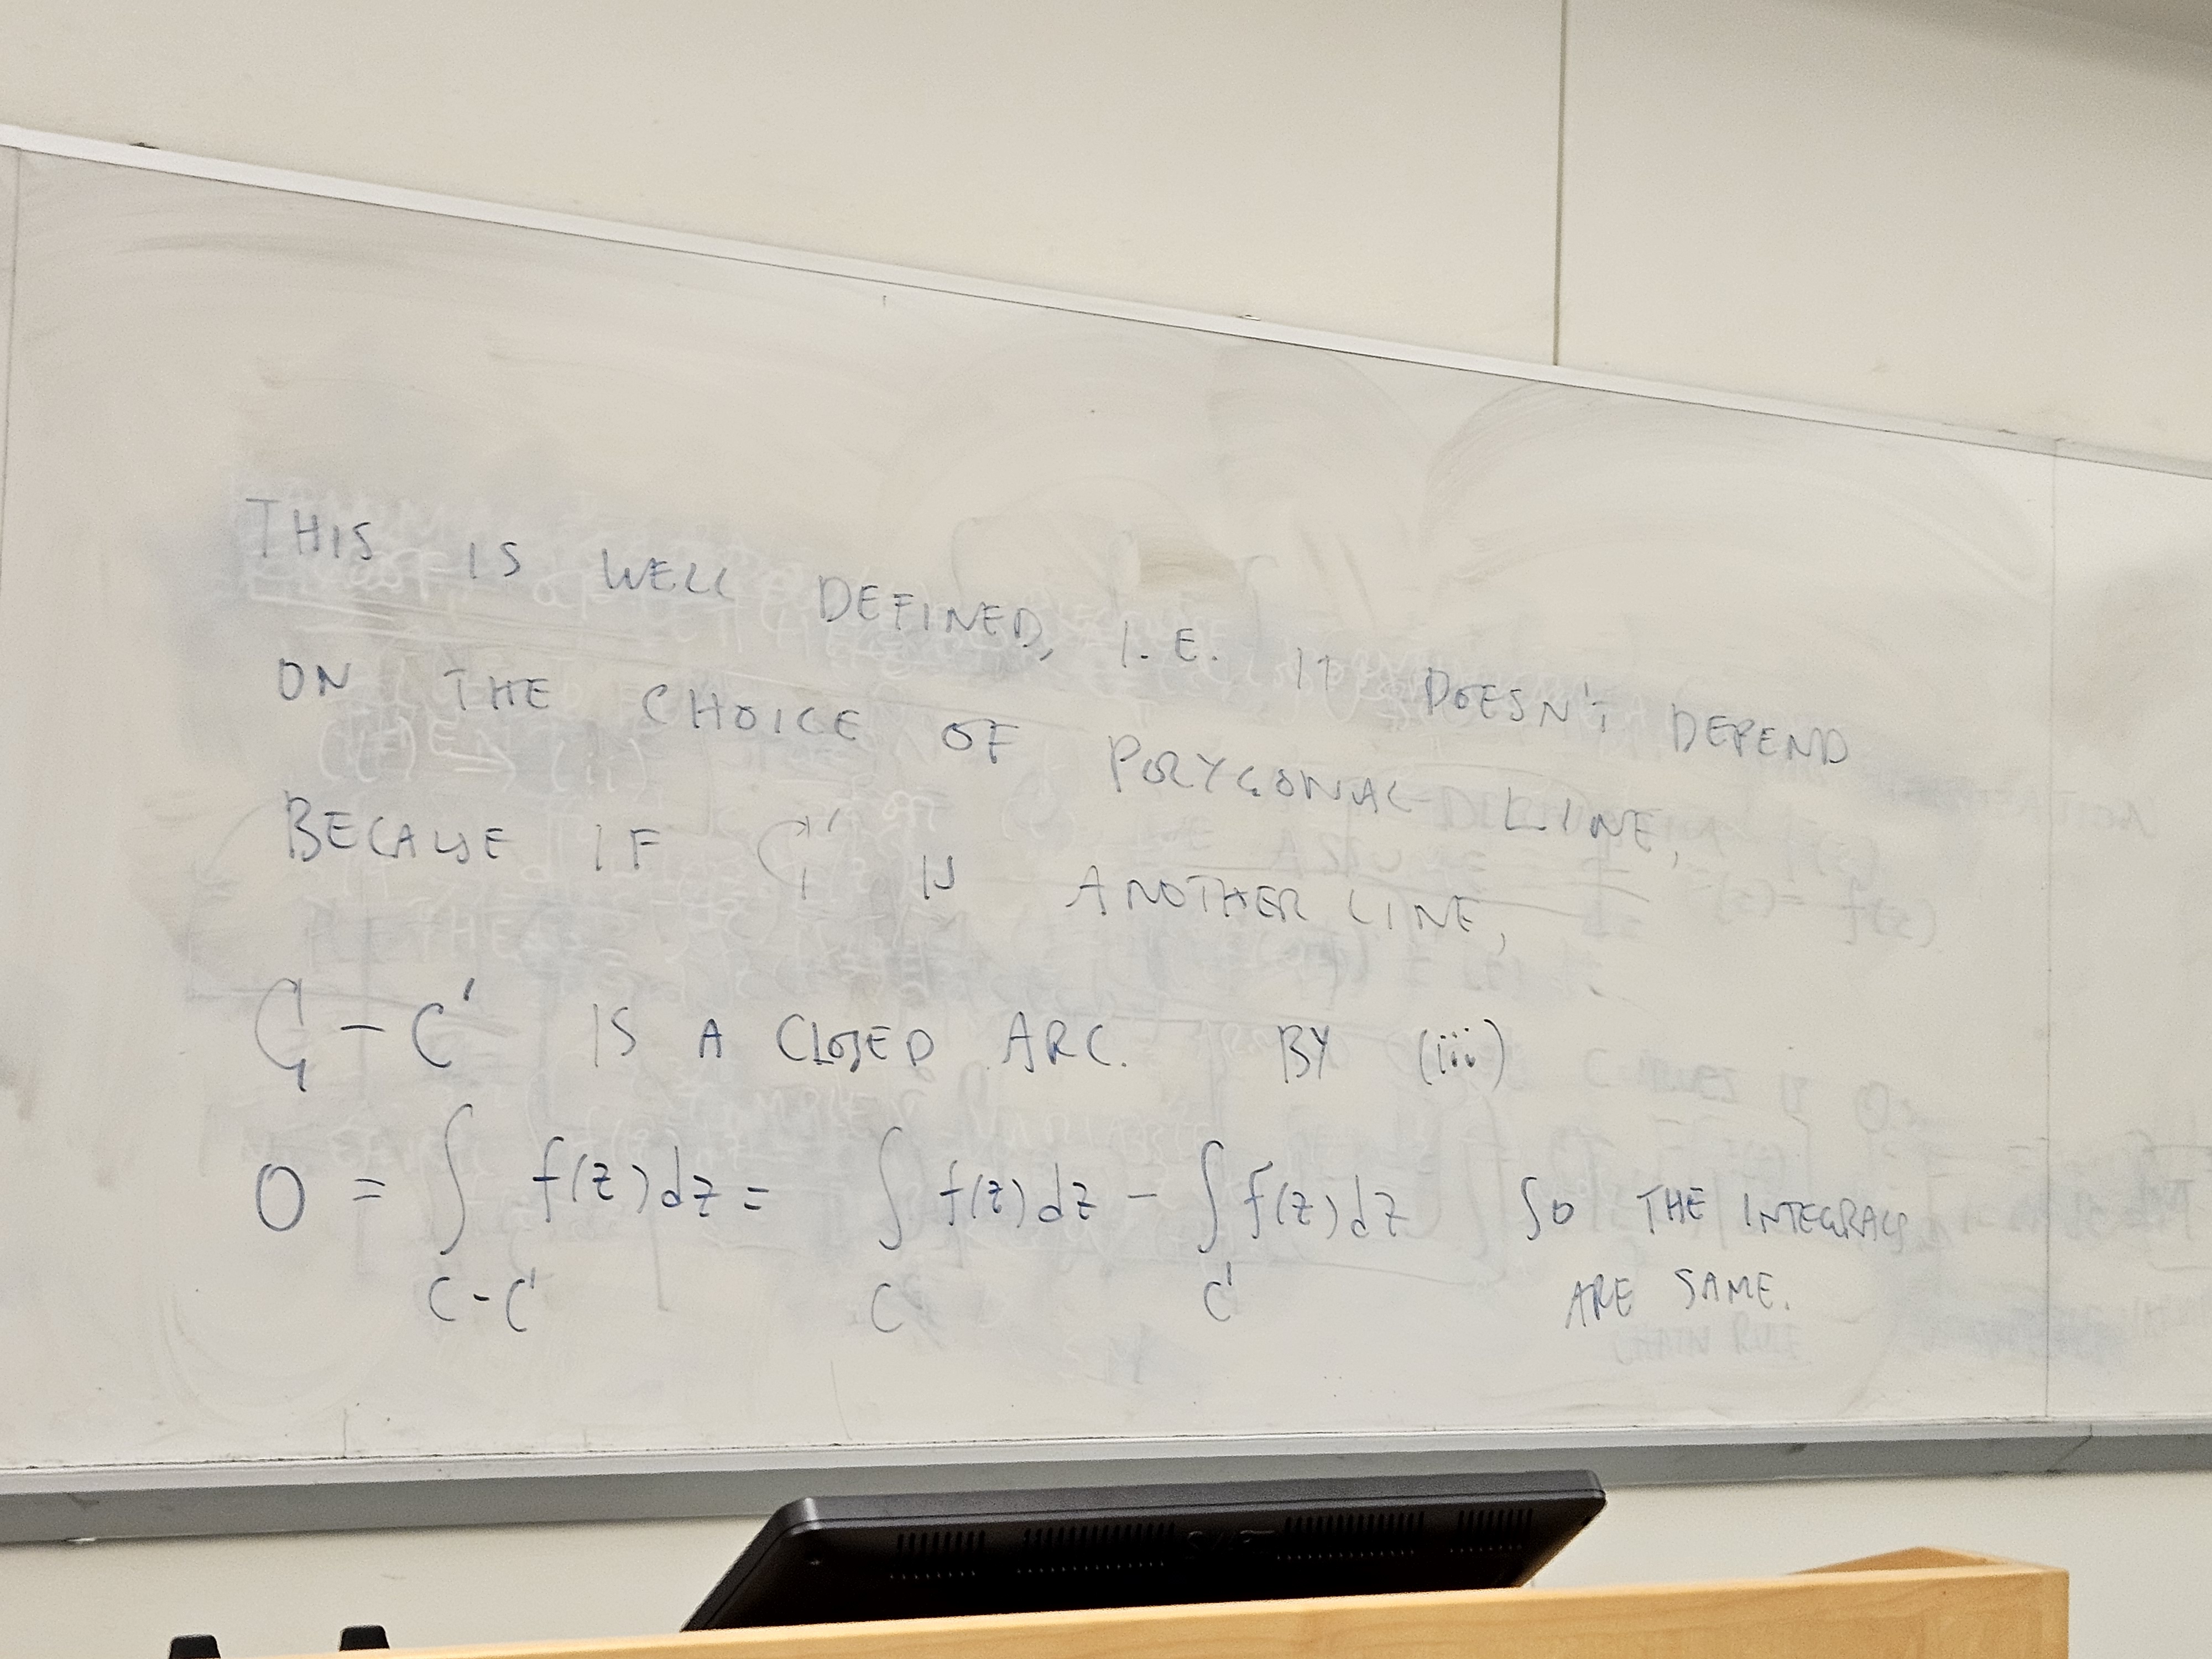 THIS IS WELL DEFINED, I.E. IT DOESN'T DEPEND
ON THE CHOICE OF POLYGONAL LINE,
BECAUSE IF C' IS ANOTHER LINE,
C - C' IS A CLOSED ARC. BY (iii)
0 = ∫ f(z)dz = ∫ f(z)dz - ∫ f(z)dz SO THE INTEGRALS
C-C' C C' ARE SAME.